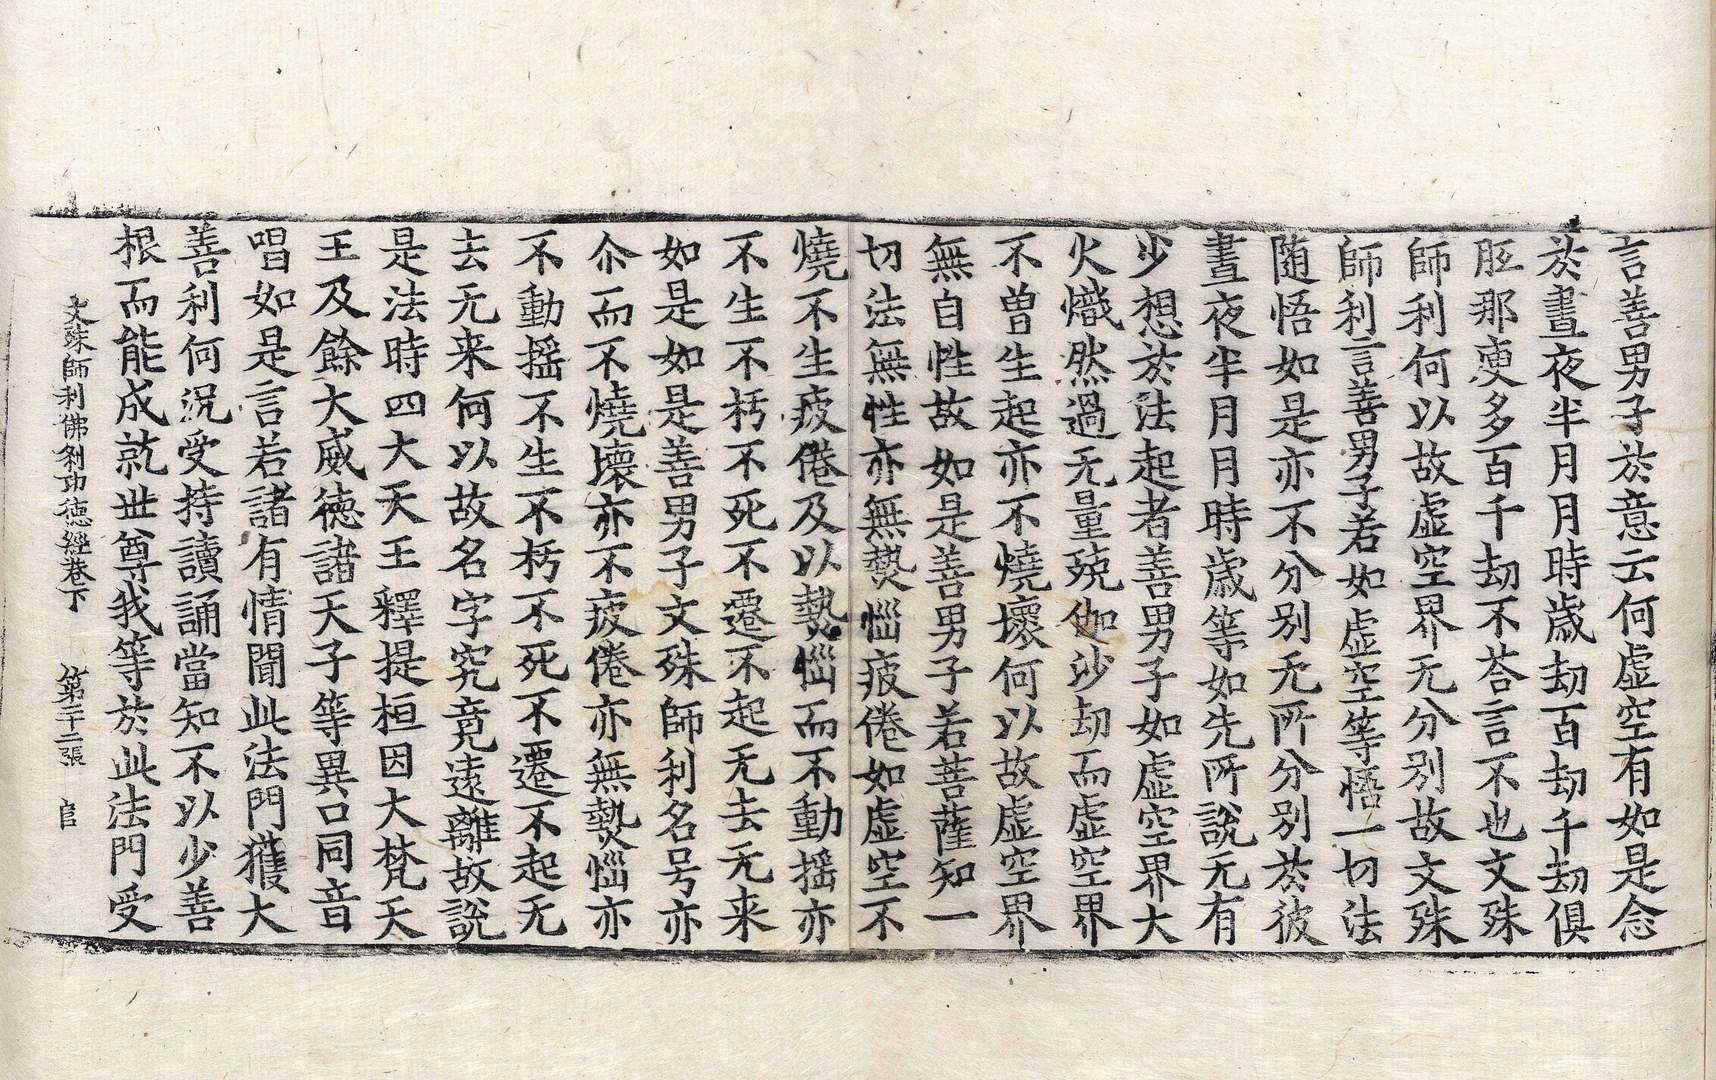 言善男子於意云何虛空有如是念
於晝夜半月月時歲劫百劫千劫俱
胝那庾多百千劫不荅言不也文殊
師利何以故虛空界无分別故文殊
師利言善男子若如虛空等悟一切法
随悟如是亦不分別无所分別於彼
晝夜半月月時歲等如先所說无有
少想於法起者善男子如虛空界大
火熾然過无量殑伽沙劫而虛空界
不曾生起亦不燒壞何以故虛空界
無自性故如是善男子若菩薩知一
切法無性亦無熱惱疲倦如虛空不
燒不生疲倦及以熱惱而不動搖亦
不生不朽不死不遷不起无去无来
如是如是善男子文殊師利名号亦
尒而不燒壞亦不疲倦亦無熱惱亦
不動搖不生不朽不死不遷不起无
去无来何以故名字究竟遠離故說
是法時四大天王釋提桓因大梵天
王及餘大威德諸天子等異口同音
唱如是言若諸有情聞此法門獲大
善利何況受持讀誦當知不以少善
根而能成就世尊我等於此法門受
文殊師利佛剎功德經卷下 第二十二張 官